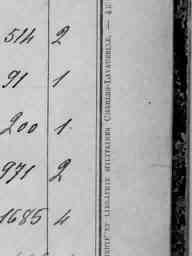 514 2
91 1
200 1
971 2
1685 4
ET LIBRAIRIE MILITAIRES CHARLES-LAVAUZELLE. —